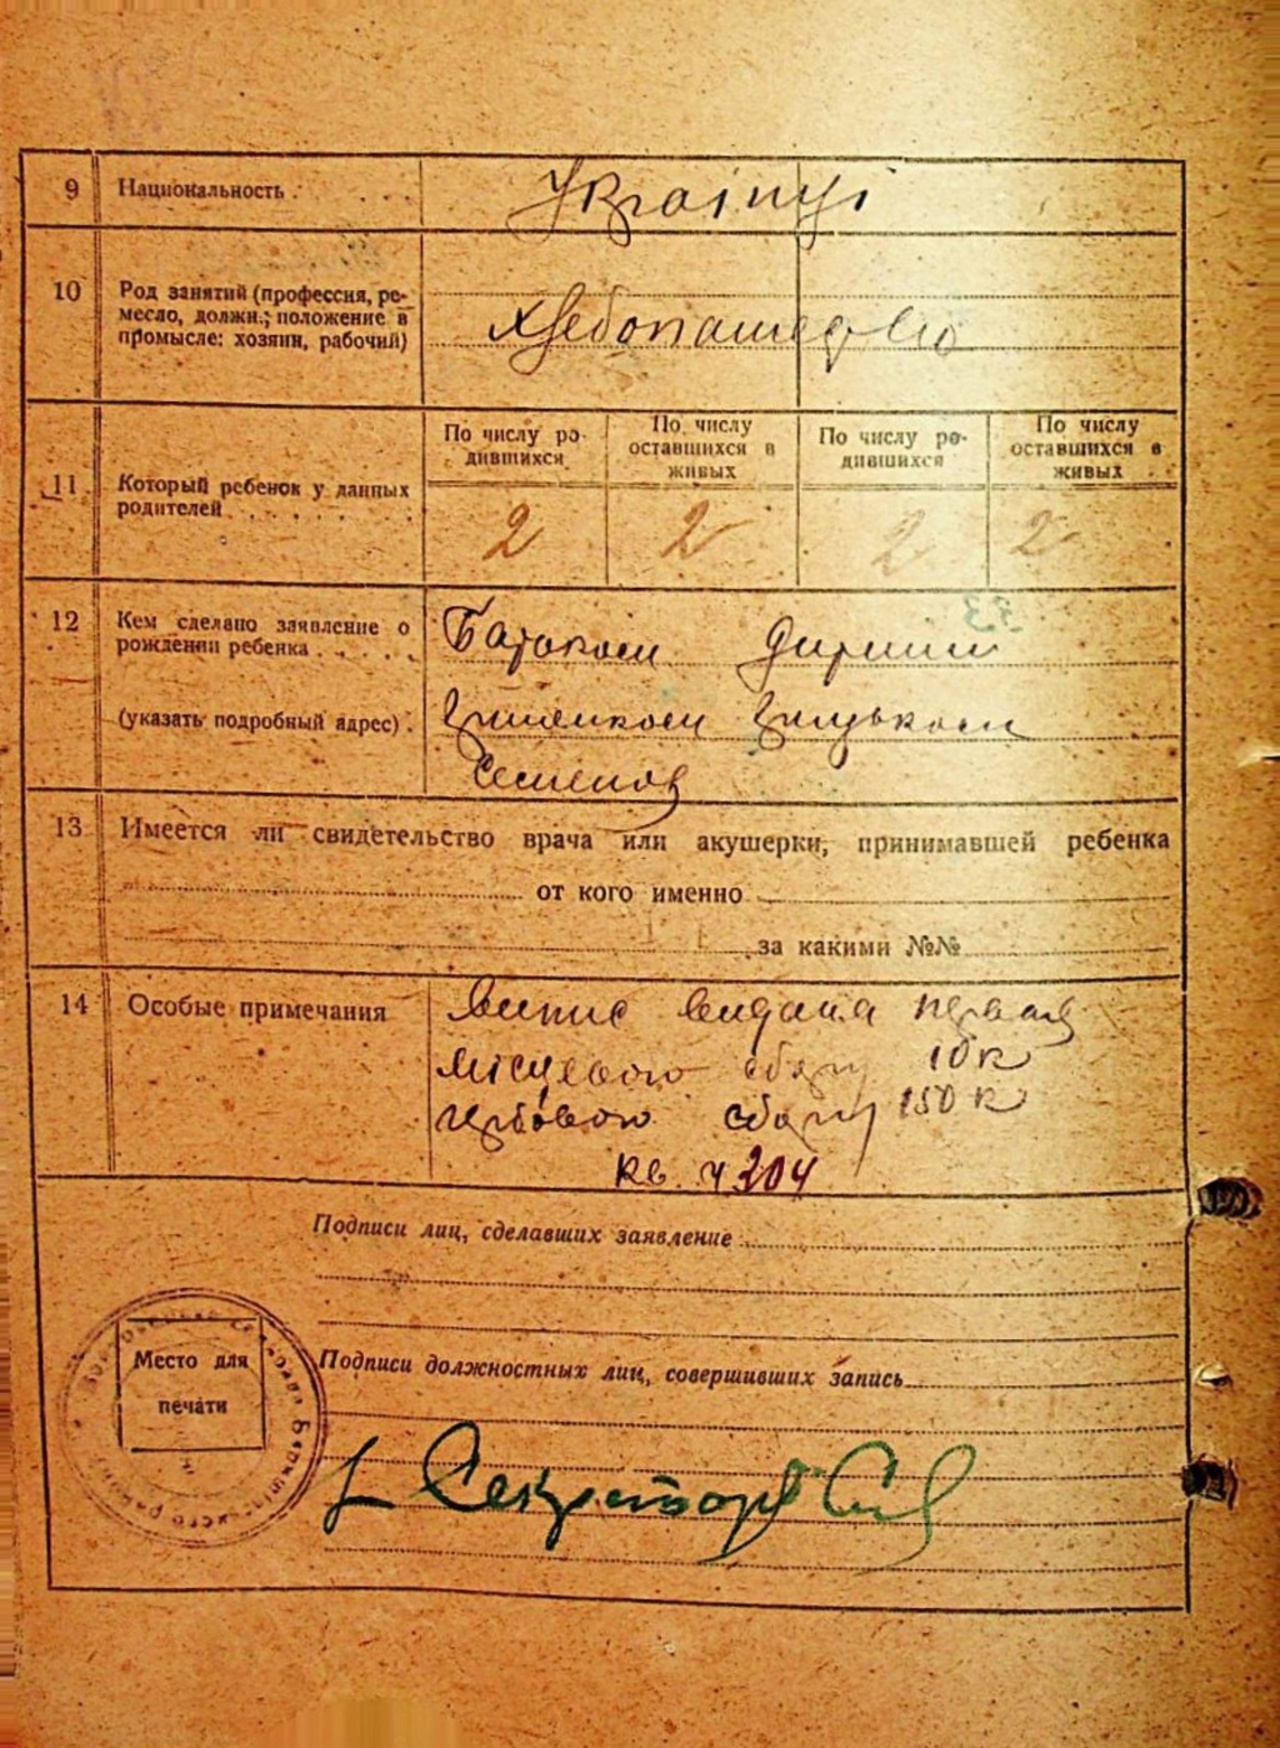 9 Национальность
Україн
10 Род занятий (профессия, ре-
месло, должн.; положение в
промысле: хозяин, рабочий)
Хлебопашество
11 Который ребенок у данных
родителей
По числу ро-
дившихся
По числу
оставшихся в
живых
По числу ро-
дившихся
По числу
оставшихся в
живых
2 2 2 2
12 Кем сделано заявление о
рождении ребенка
(указать подробный адрес)
Батьком
Семенов
13 Имеется ли свидетельство врача или акушерки, принимавшей ребенка
от кого именно
за какими №№
14 Особые примечания
Випис видана
місцевого збору 10 к
гербового збору 150 к
кв. ч 304
Подписи лиц, сделавших заявление
Подписи должностных лиц, совершивших запись
Место для
печати
Секретарь